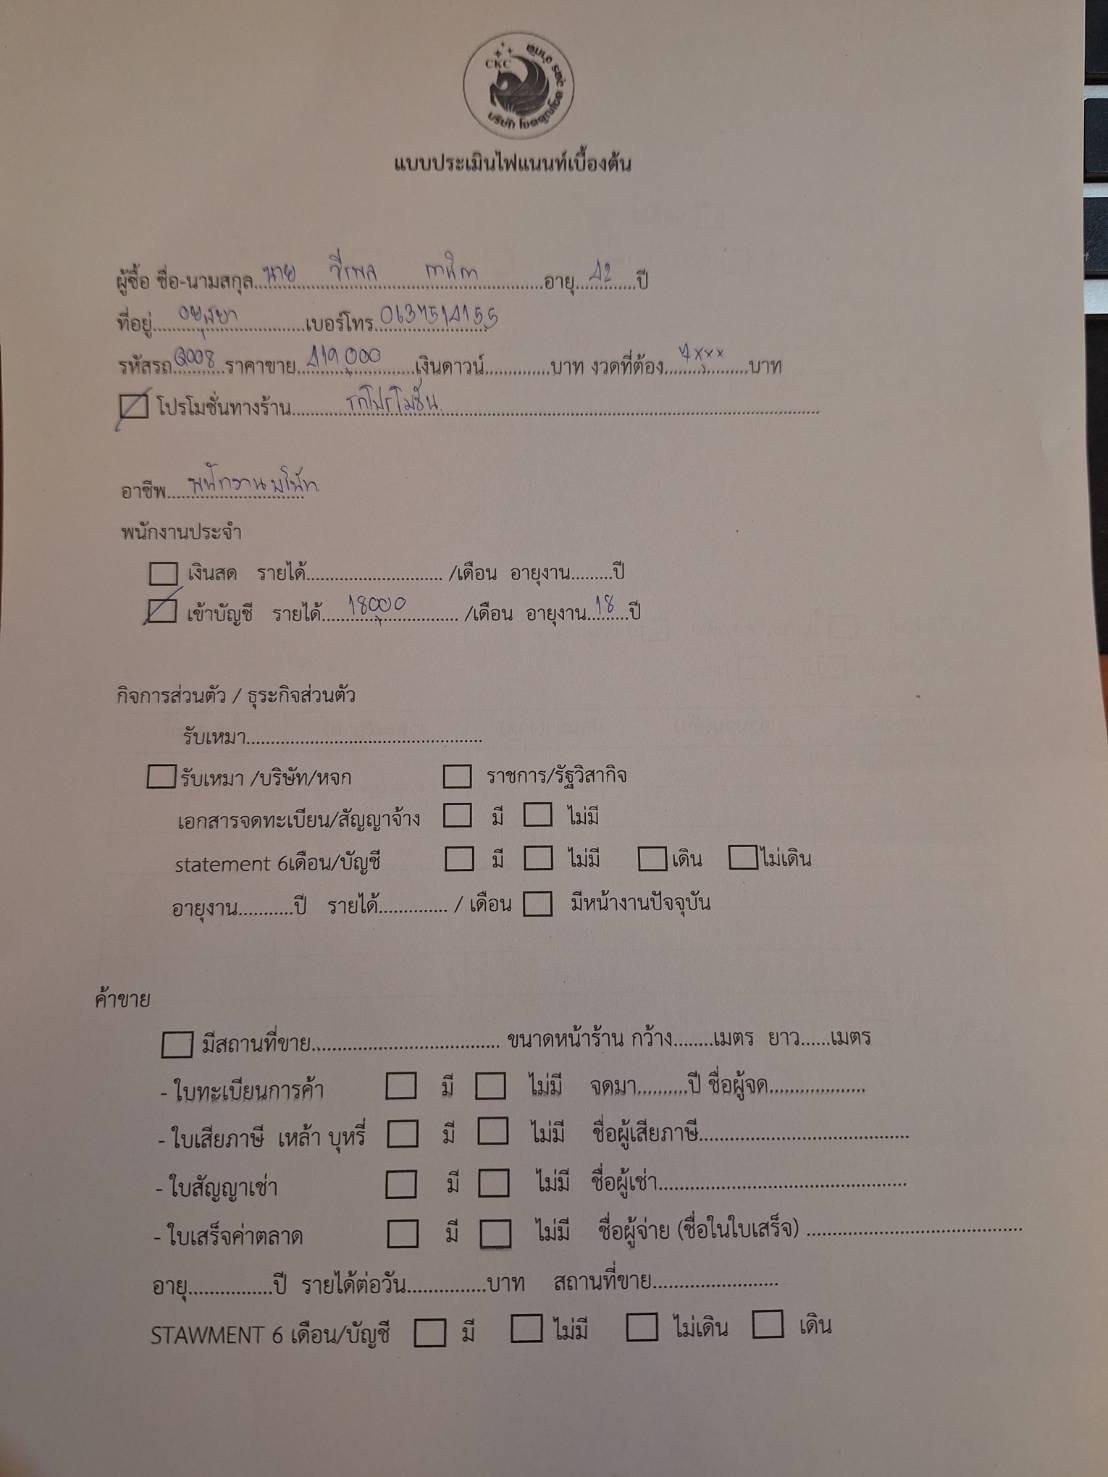 CKC
แบบประเมินไฟแนนท์เบื้องต้น
ผู้ซื้อ ชื่อ-นามสกุล...นาย...อายุ...42...ปี
ที่อยู่...อยุธยา...เบอร์โทร...
รหัสรถ...ราคาขาย...419,000...เงินดาวน์...บาท งวดที่ต้อง...7,xxx...บาท
โปรโมชั่นทางร้าน...รถโปรโมชั่น...
อาชีพ...พนักงาน...
พนักงานประจำ
เงินสด รายได้.../เดือน อายุงาน...ปี
เข้าบัญชี รายได้...18,000.../เดือน อายุงาน...18...ปี
กิจการส่วนตัว / ธุระกิจส่วนตัว
รับเหมา...
รับเหมา /บริษัท/หจก ราชการ/รัฐวิสากิจ
เอกสารจดทะเบียน/สัญญาจ้าง มี ไม่มี
statement 6เดือน/บัญชี มี ไม่มี เดิน ไม่เดิน
อายุงาน...ปี รายได้... / เดือน มีหน้างานปัจจุบัน
ค้าขาย
มีสถานที่ขาย... ขนาดหน้าร้าน กว้าง...เมตร ยาว...เมตร
- ใบทะเบียนการค้า มี ไม่มี จดมา...ปี ชื่อผู้จด...
- ใบเสียภาษี เหล้า บุหรี่ มี ไม่มี ชื่อผู้เสียภาษี...
- ใบสัญญาเช่า มี ไม่มี ชื่อผู้เช่า...
- ใบเสร็จค่าตลาด มี ไม่มี ชื่อผู้จ่าย (ชื่อในใบเสร็จ) ...
อายุ...ปี รายได้ต่อวัน...บาท สถานที่ขาย...
STAWMENT 6 เดือน/บัญชี มี ไม่มี ไม่เดิน เดิน